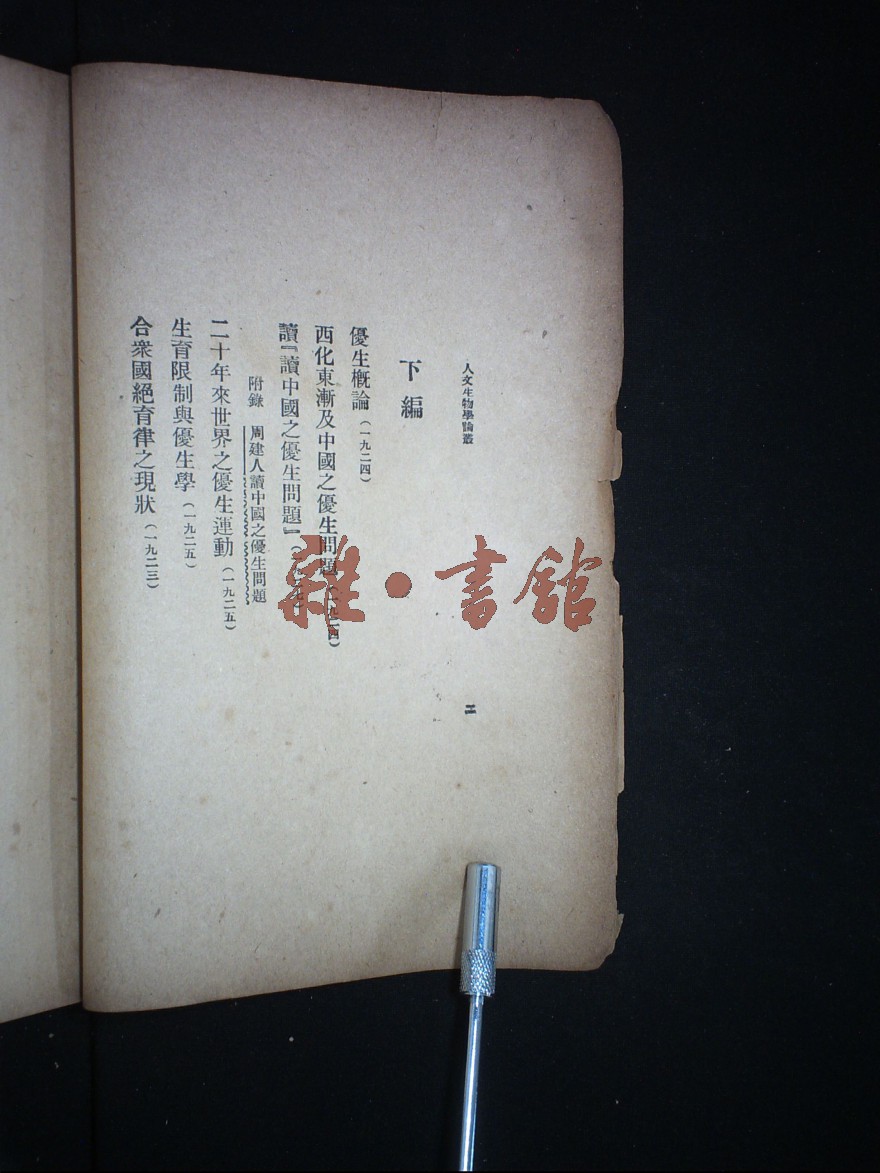 人文生物學論叢
二
下編
優生概論（一九二四）
西化東漸及中國之優生問題（一九二四）
讀『讀中國之優生問題』
附錄 周建人讀中國之優生問題
二十年來世界之優生運動（一九二五）
生育限制與優生學（一九二五）
合衆國絕育律之現狀（一九二三）
雜·書館